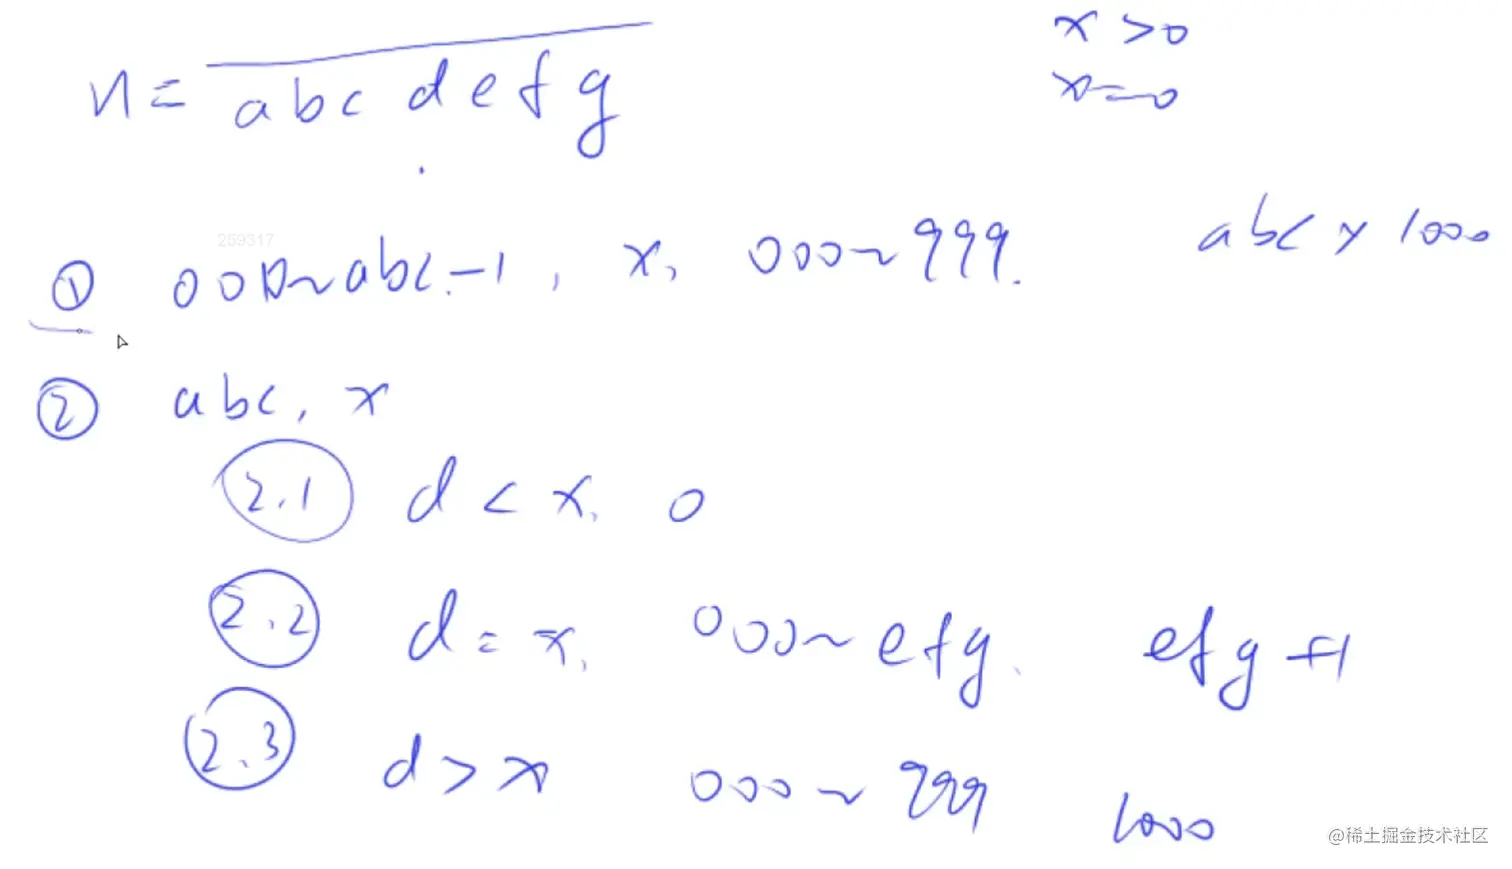 x > 0
n = abcdefg
x = 0
259317
① 000~abc-1, x, 000~999. abc × 1000
② abc, x
2.1 d < x, 0
2.2 d = x, 000~efg. efg+1
2.3 d > x 000~999 1000
@稀土掘金技术社区